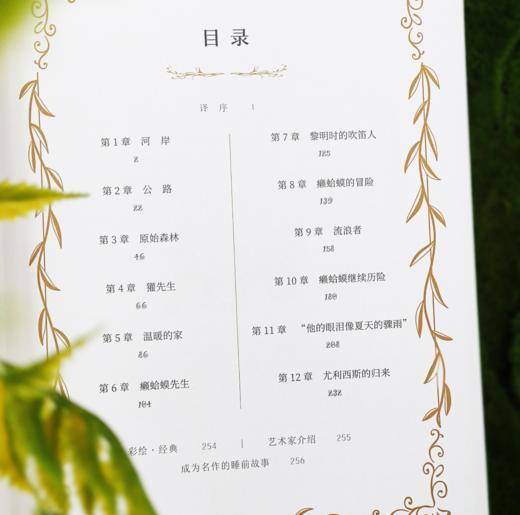 目录
译 序 1
第1章 河 岸
2
第2章 公 路
22
第3章 原始森林
46
第4章 獾先生
66
第5章 温暖的家
86
第6章 癞蛤蟆先生
104
第7章 黎明时的吹笛人
125
第8章 癞蛤蟆的冒险
139
第9章 流浪者
158
第10章 癞蛤蟆继续历险
180
第11章 “他的眼泪像夏天的骤雨”
208
第12章 尤利西斯的归来
232
彩绘·经典 254 | 艺术家介绍 255
成为名作的睡前故事 256